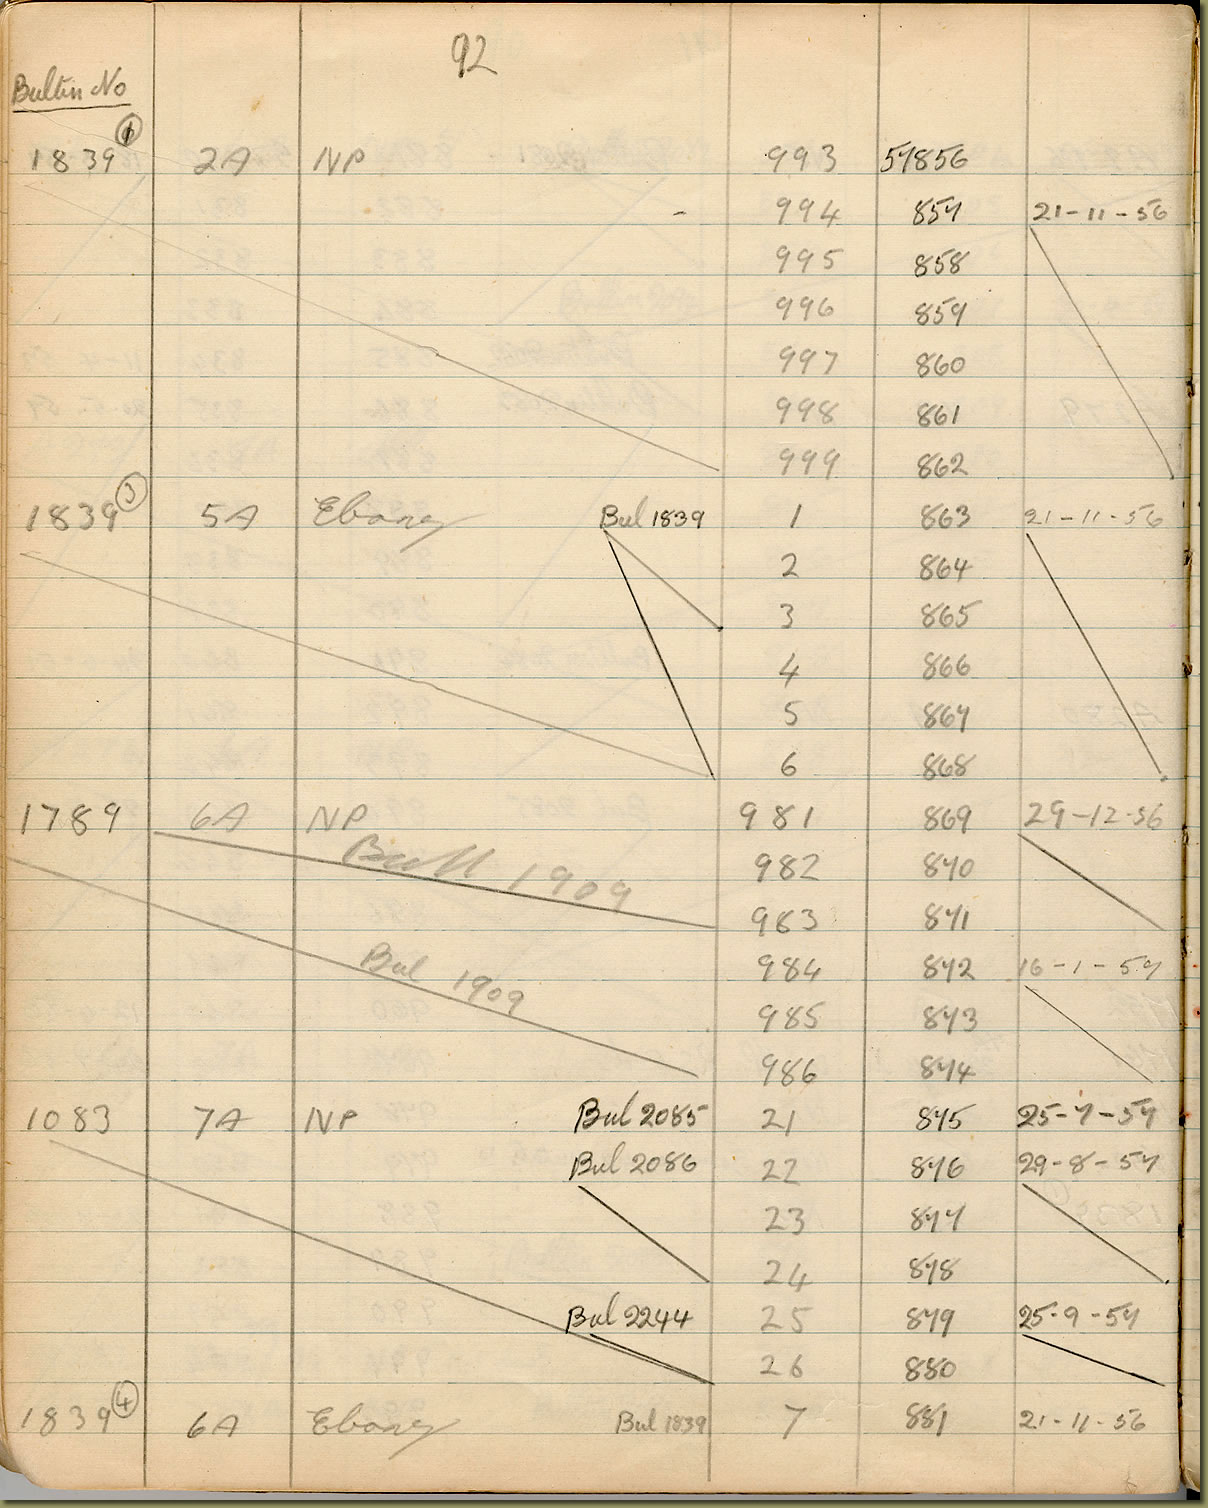 92
Bultin No
1839 ① 2A NP 993 57856
994 857 21-11-56
995 858
996 859
997 860
998 861
999 862
1839 ③ 5A Ebony Bul 1839 1 863 21-11-56
2 864
3 865
4 866
5 867
6 868
1789 6A NP 981 869 29-12-56
Bull 1909 982 870
983 871
Bul 1909 984 872 16-1-57
985 873
986 874
1083 7A NP Bul 2085 21 875 25-7-57
Bul 2086 22 876 29-8-57
23 877
24 878
Bul 2244 25 879 25-9-57
26 880
1839 ④ 6A Ebony Bul 1839 7 881 21-11-56